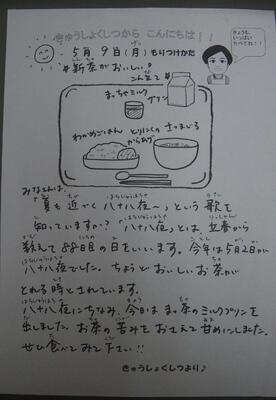 きゅうしょくしつから こんにちは！！
きょうも、
いっぱい
たべてね！！
5月 9日(月) もりつけかた
新茶がおいしい
こんだて
まっちゃミルク
プリン
わかめごはん とりにくの さつまじる
からあげ
みなさんは、
「夏も近づく 八十八夜〜」という 歌を
知っていますか？「八十八夜」とは、立春から
数えて 88日目の 日をいいます。今年は 5月2日が
八十八夜でした。ちょうど おいしい お茶が
とれる 時とされています。
八十八夜にちなみ、今日は まっ茶のミルクプリンを
出しました。お茶の 苦みを おさえて 甘めにしました。
ぜひ 食べてみて 下さい！！
きゅうしょくしつより♪